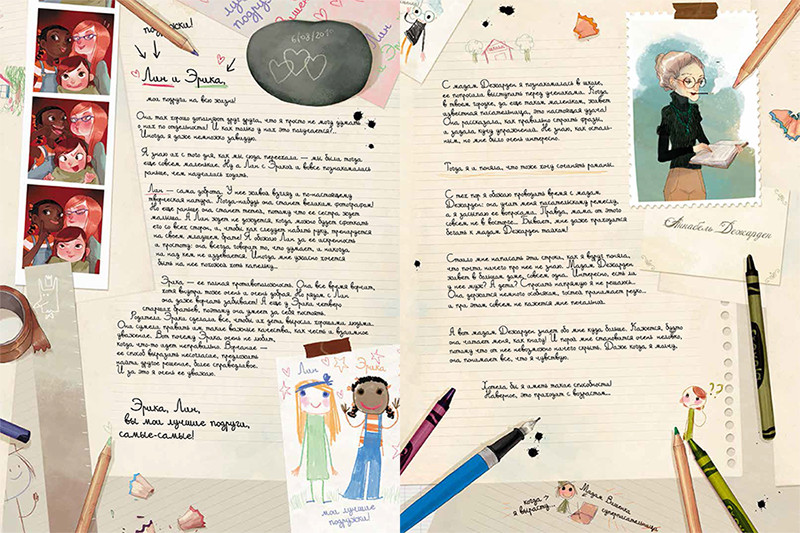 подружки!
6/03/2010
Лин и Эрика,
мои подруги на всю жизнь!
Они так хорошо дополняют друг друга, что я просто не могу думать
о них по отдельности! И как только у них это получается?..
Иногда я даже немножко завидую.
Я знаю их с того дня, как мы сюда переехали — мы были тогда
еще совсем маленькие. Ну а Лин с Эрикой и вовсе познакомились
раньше, чем научились ходить.
Лин — сама доброта. У нее живой взгляд и по-настоящему
творческая натура. Когда-нибудь она станет великим фотографом!
Но еще раньше она станет тетей, потому что ее сестра ждет
малыша. А Лин ждет не дождется, когда можно будет сфоткать
его со всех сторон, и, чтобы как следует набить руку, тренируется
на своем младшем брате! Я обожаю Лин за ее искренность
и простоту: она всегда говорит то, что думает, и никогда
ни над кем не издевается. Иногда мне ужасно хочется
быть на нее похожей хоть капельку...
Эрика — ее полная противоположность. Она все время ворчит,
хотя внутри тоже очень и очень добрая. Но рядом с Лин
она даже ворчать забывает! А еще у Эрики четверо
старших братьев, поэтому она умеет за себя постоять.
Родители Эрики сделали все, чтобы их дети выросли хорошими людьми.
Они сумели привить им такие важные качества, как честь и взаимное
уважение. Вот почему Эрика очень не любит,
когда что-то идет неправильно. Ворчание —
ее способ выразить несогласие, предложить
найти другое решение, более справедливое.
И за это я очень ее уважаю.
Эрика, Лин,
вы мои лучшие подруги,
самые-самые!
Лин
Эрика
мои лучшие
подружки!
школа
С мадам Дежарден я познакомилась в школе,
ее попросили выступить перед учениками. Когда
в твоем городке, да еще таком маленьком, живет
известная писательница, это настоящая удача!
Она рассказала, как правильно строить фразы,
и задала кучу упражнений. Не знаю, как осталь-
ным, но мне было очень интересно.
Тогда я и поняла, что тоже хочу сочинять романы.
С тех пор я обожаю проводить время с мадам
Дежарден: она учит меня писательскому ремеслу,
а я засыпаю ее вопросами. Правда, мама от этого
совсем не в восторге... Бывает, мне даже приходится
бегать к мадам Дежарден тайком!
Стоило мне написать эти строки, как я вдруг поняла,
что почти ничего про нее не знаю. Мадам Дежарден
живет в большом доме, совсем одна. Интересно, есть ли
у нее муж? А дети? Спросить напрямую я не решаюсь...
Она держится немного особняком, гостей принимает редко...
и при этом совсем не кажется мне печальной.
А вот мадам Дежарден знает обо мне куда больше. Кажется, будто
она читает меня, как книгу! И порой мне становится очень неловко,
потому что от нее невозможно ничего скрыть. Даже когда я молчу,
она понимает все, что я чувствую.
Хотела бы я иметь такие способности!
Наверное, это приходит с возрастом...
Аннабель Дежарден
??
когда
я вырасту...
Мадам Вишенка
суперписательница